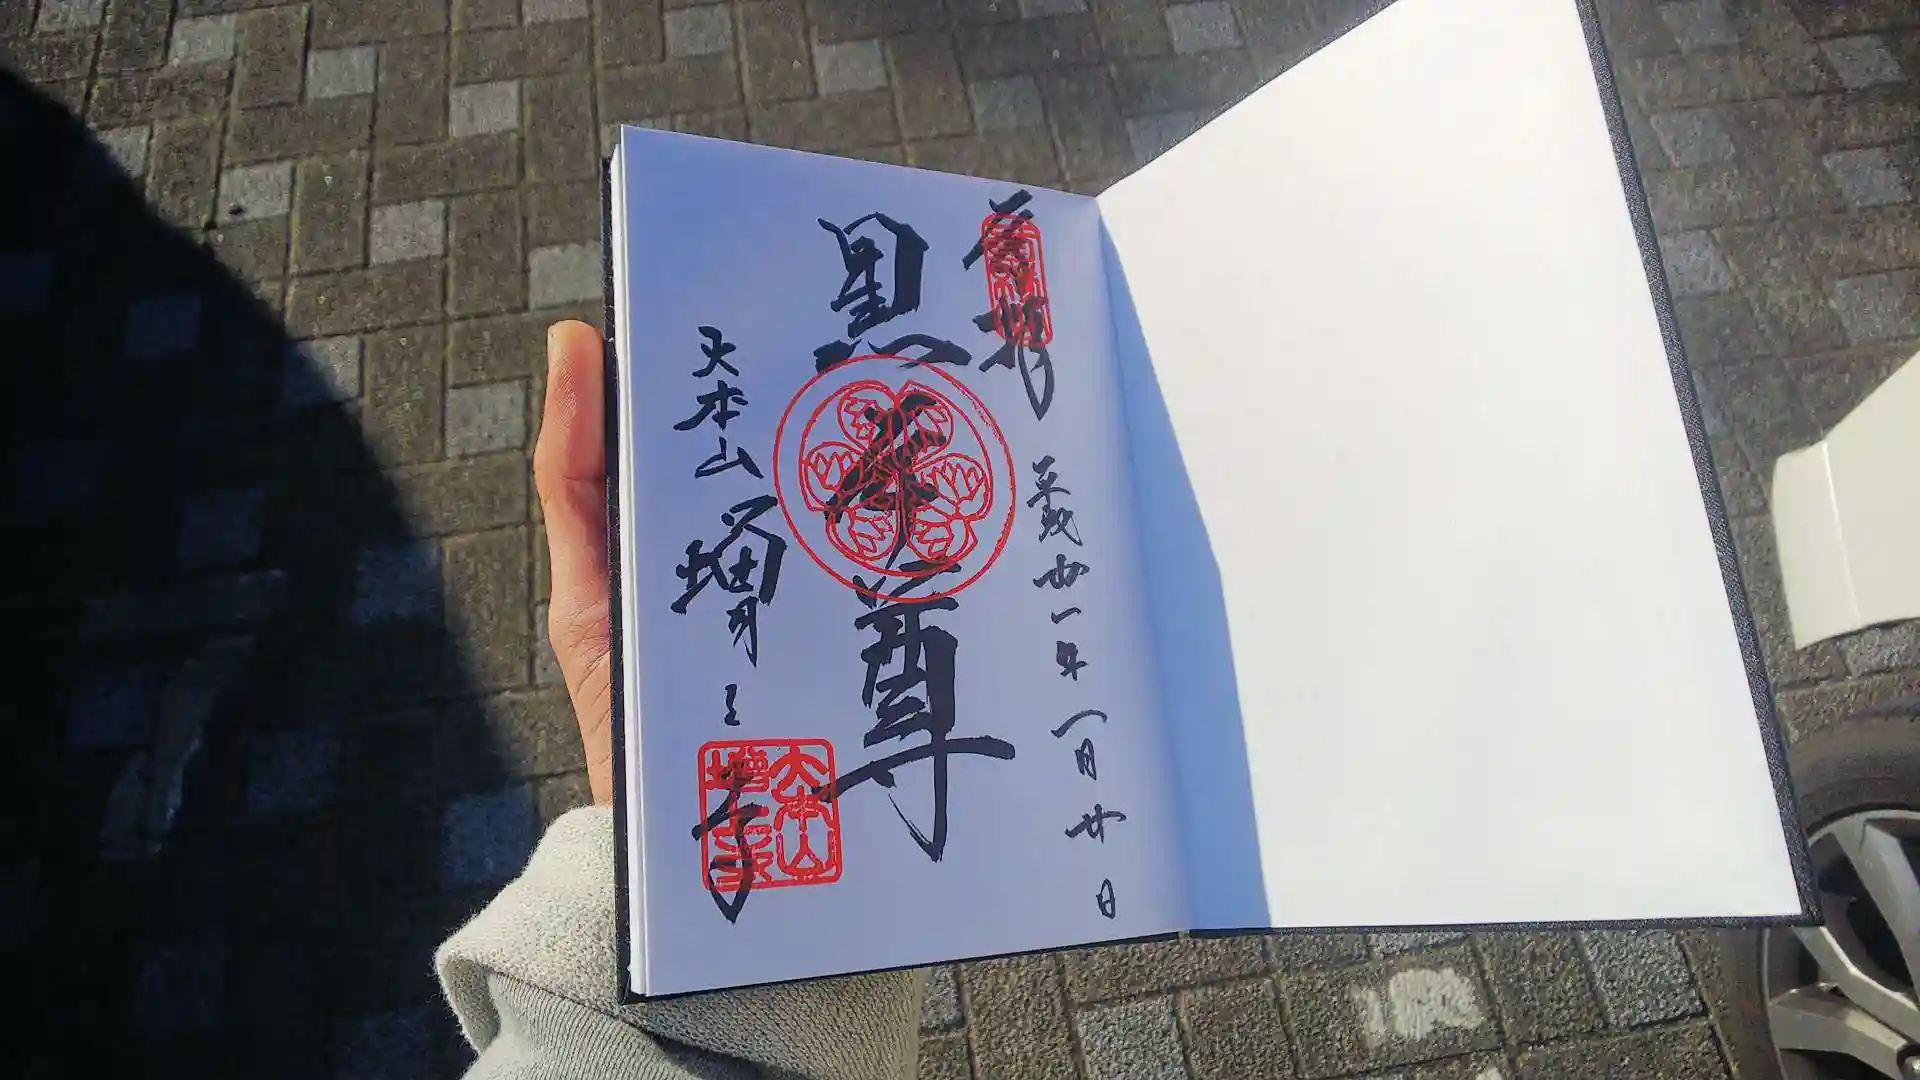 奉拝
平成卅一年一月廿日
黒本尊
大本山増上寺
大本山
増上寺